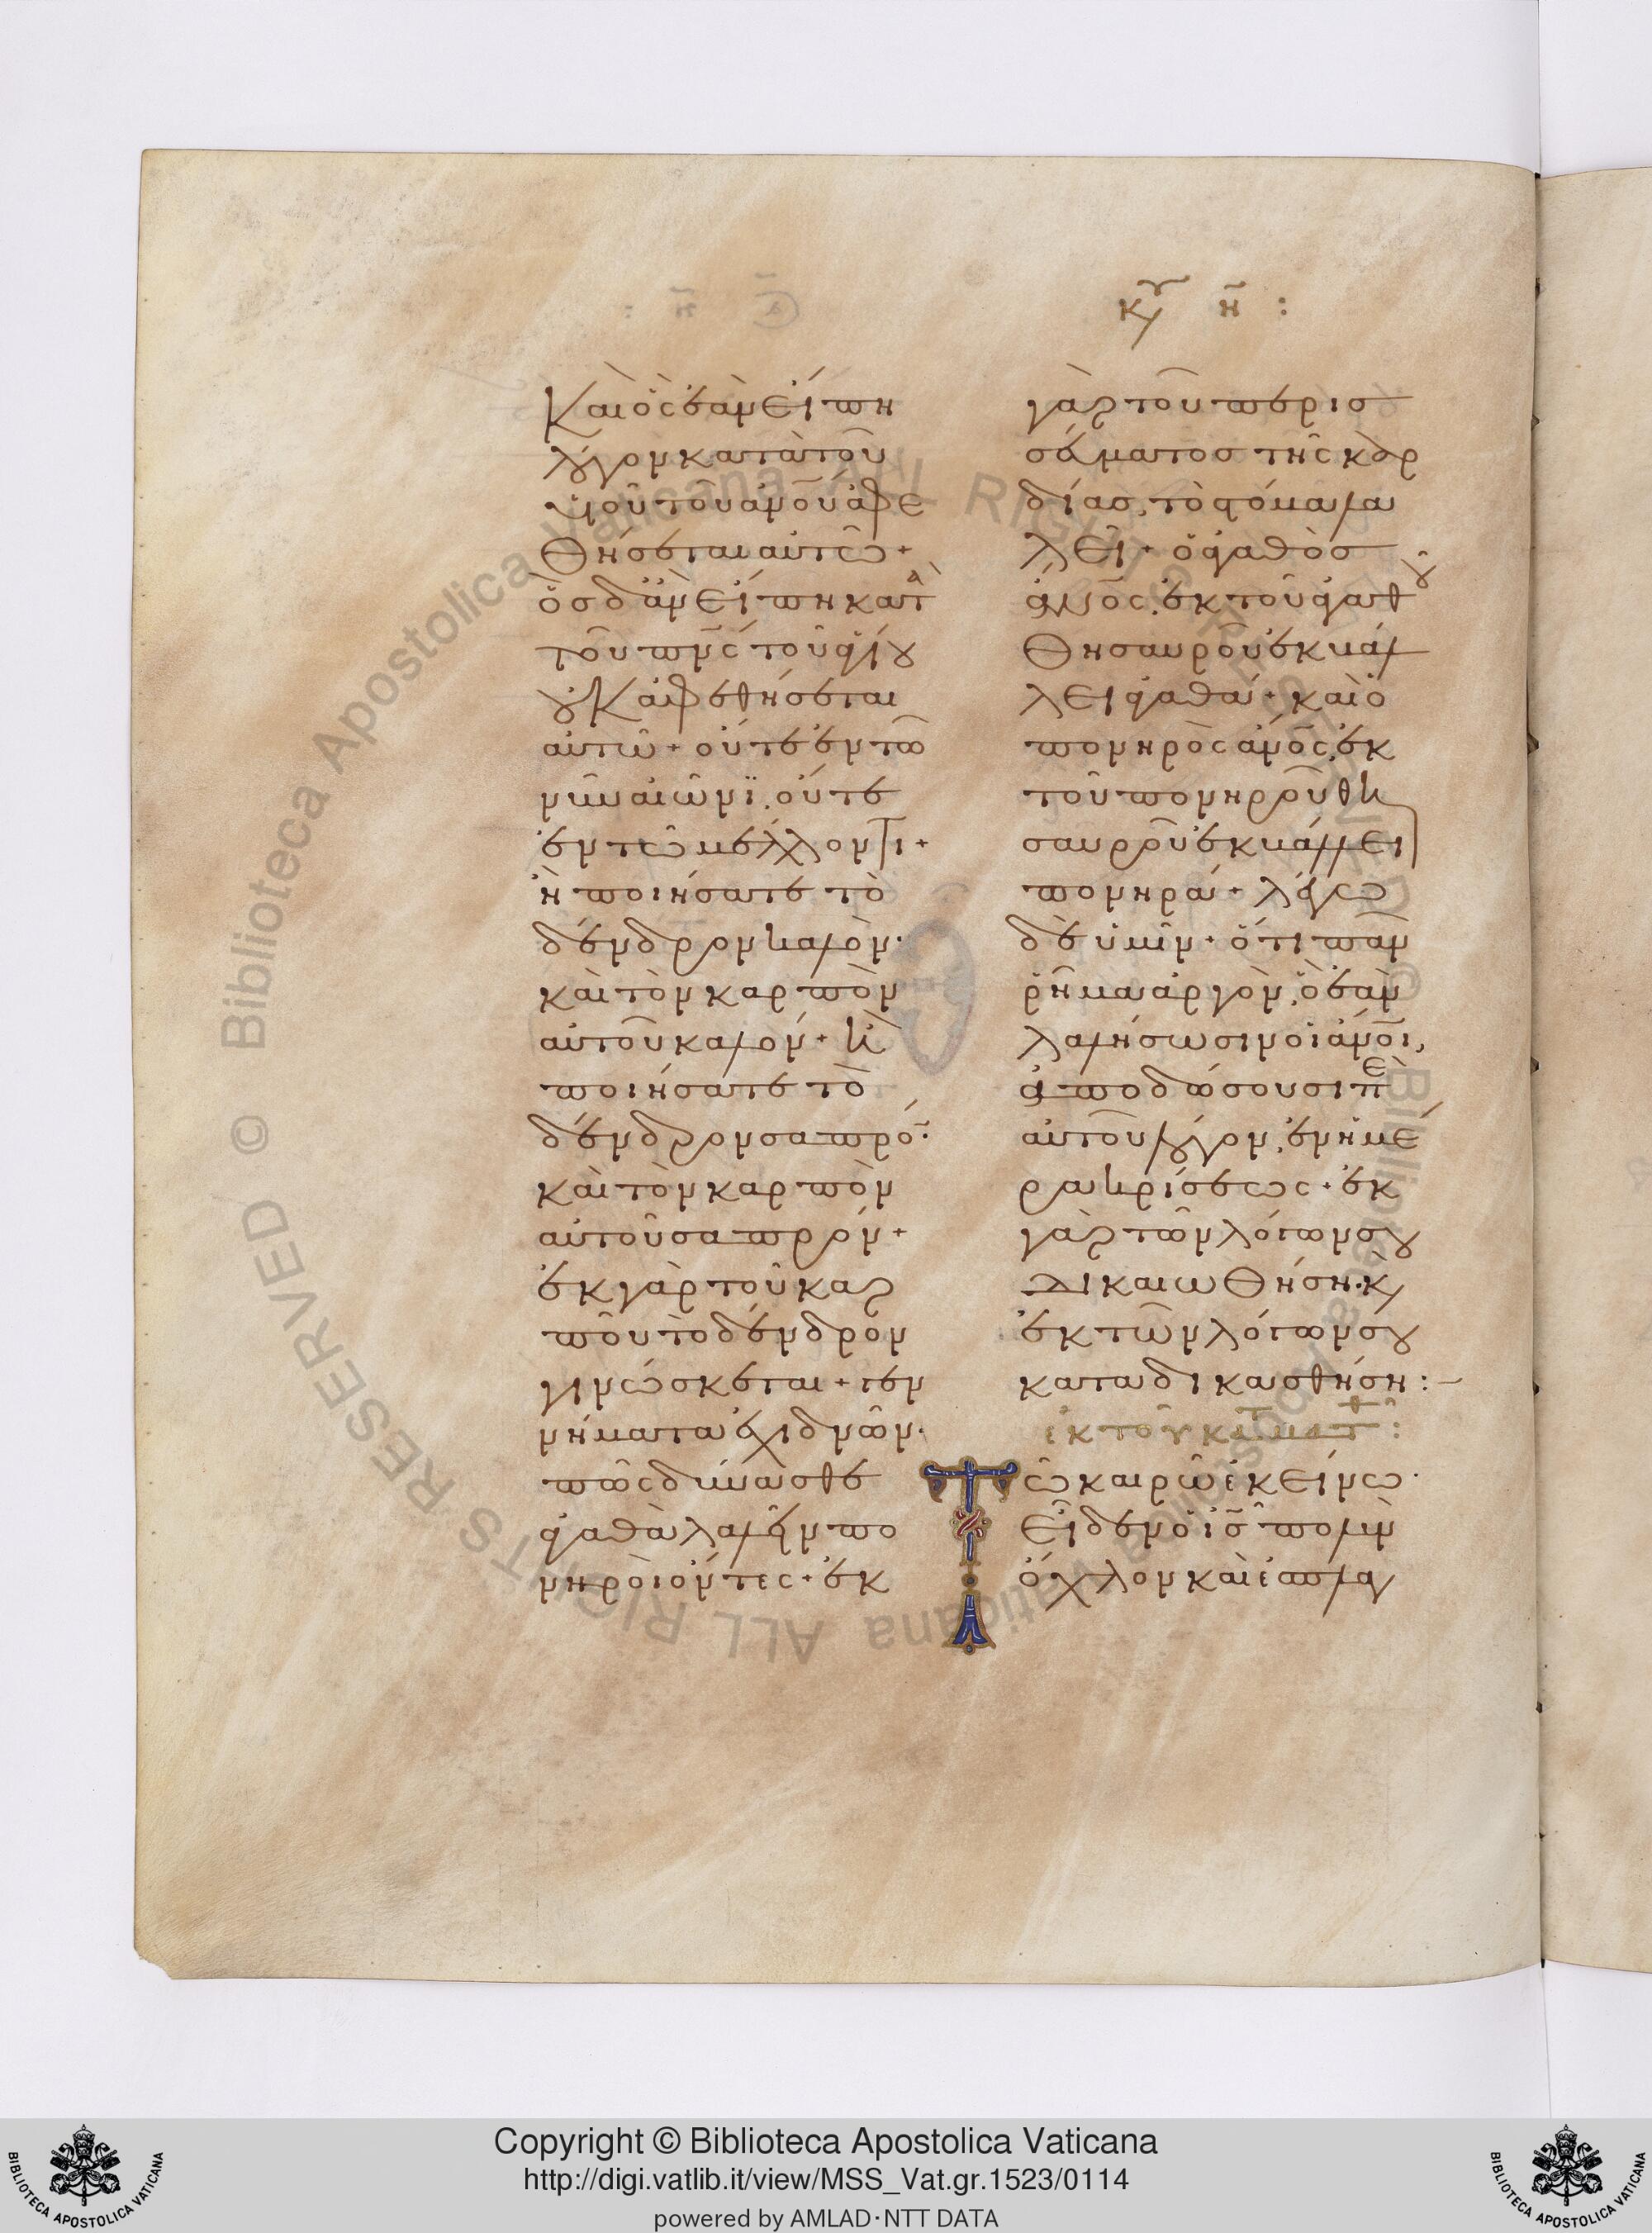 κυ η :
Και ὃς ἐὰν εἴπη
λόγον κατὰ τοῦ
υἱοῦ τοῦ ἀνου ἀφε
θήσεται αὐτῶ +
ὃς δ' ἂν εἴπη κατ
τοῦ πνς τοῦ ἁγίου
οὐκ ἀφεθήσεται
αὐτῶ + οὔτε ἐν τῶ
νῦν αἰῶνϊ, οὔτε
ἐν τῶ μέλλοντι +
ἢ ποιήσατε τὸ
δένδρον καλὸν ·
καὶ τὸν καρπὸν
αὐτοῦ καλόν + ἢ
ποιήσατε τὸ
δένδρον σαπρό ·
καὶ τὸν καρπὸν
αὐτοῦ σαπρόν +
ἐκ γὰρ τοῦ καρ
ποῦ τὸ δένδρον
γινώσκεται + γεν
νήματα ἐχιδνῶν ·
πῶς δύνασθε
ἀγαθὰ λαλεῖν πο
νηροὶ ὄντες + ἐκ
γὰρ τοῦ περισ
σεύματος τῆς καρ
δίας, τὸ στόμα λα
λεῖ + ὁ ἀγαθὸς
ἄνος, ἐκ τοῦ ἀγαθου
θησαυροῦ ἐκβάλ
λει ἀγαθά + καὶ ὁ
πονηρὸς ἄνος, ἐκ
τοῦ πονηροῦ θη
σαυροῦ ἐκβάλλει
πονηρά + λέγω
δὲ ὑμῖν + ὅτι πᾶν
ῥῆμα ἀργὸν, ὃ ἐὰν
λαλήσωσιν οἱ ἄνοι,
ἀποδώσουσι πε
αὐτοῦ λόγον, ἐν ἡμέ
ρα κρίσεως + ἐκ
γὰρ τῶν λόγων σου
δικαιωθήση · κ
ἐκ τῶν λόγων σου
καταδικασθήση : –
ἐκ τοῦ κατ ματθ :
Τῶ καιρῶ ἐκείνω ·
εἶδεν ὁ ις πολὺν
ὄχλον καὶ ἐσπλα
Copyright © Biblioteca Apostolica Vaticana
http://digi.vatlib.it/view/MSS_Vat.gr.1523/0114
powered by AMLAD·NTT DATA
BIBLIOTECA APOSTOLICA VATICANA
BIBLIOTECA APOSTOLICA VATICANA
© Biblioteca Apostolica Vaticana ALL RIGHTS RESERVED © Biblioteca Apostolica Vaticana ALL RIGHTS RESERVED